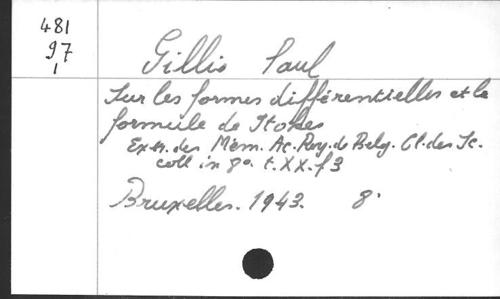 481
97
1
Gillis Paul
Sur les formes différentielles et la
formule de Stokes
Extr. des Mém. Ac. Roy. de Belg. Cl. des Sc.
coll in 8o. t. XX. f 3
Bruxelles. 1943. 8°